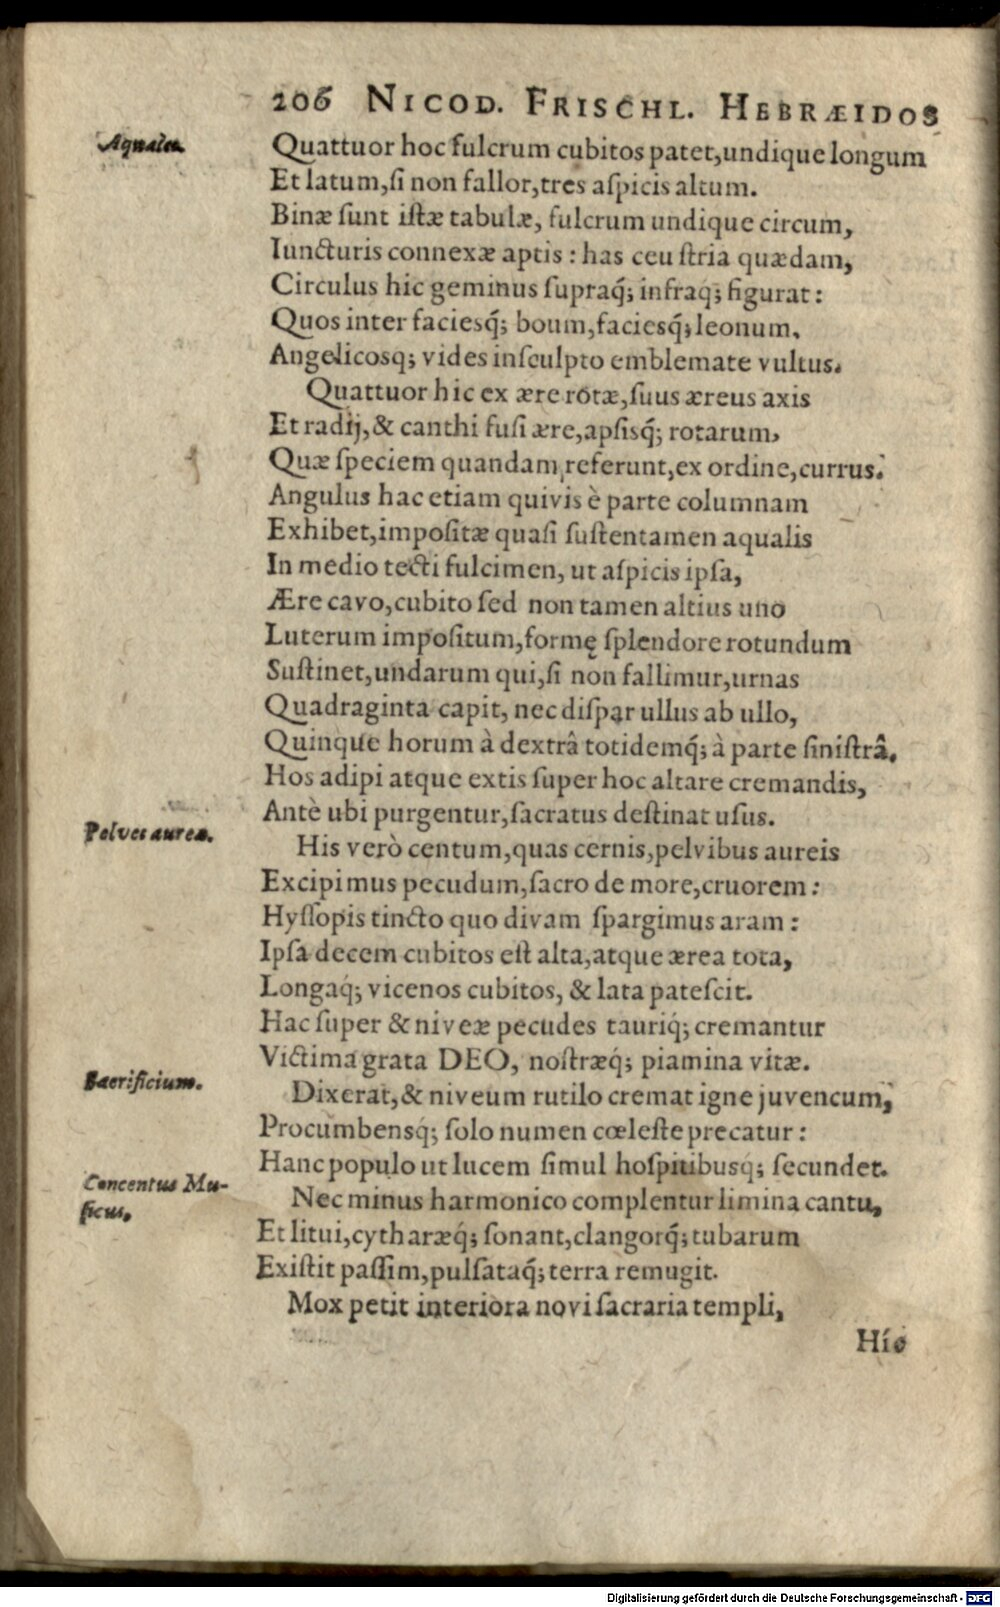 206 NICOD. FRISCHL. HEBRÆIDOS
Quattuor hoc fulcrum cubitos patet,undique longum
Et latum,ſi non fallor,tres aſpicis altum.
Binæ ſunt iſtæ tabulæ, fulcrum undique circum,
Iuncturis connexæ aptis : has ceu ſtria quædam,
Circulus hic geminus ſupraq́; infraq́; figurat :
Quos inter facieſq́; boum,facieſq́; leonum,
Angelicosq; vides inſculpto emblemate vultus.
Quattuor hic ex ære rotæ,ſuus æreus axis
Et radij,& canthi fuſi ære,apſisq́; rotarum,
Quæ ſpeciem quandam referunt,ex ordine,currus.
Angulus hac etiam quivis è parte columnam
Exhibet,impoſitæ quaſi ſuſtentamen aqualis
In medio tecti fulcimen, ut aſpicis ipſa,
Ære cavo,cubito ſed non tamen altius uno
Luterum impoſitum,formę ſplendore rotundum
Suſtinet,undarum qui,ſi non fallimur,urnas
Quadraginta capit, nec diſpar ullus ab ullo,
Quinque horum à dextrâ totidemq́; à parte ſiniſtrâ.
Hos adipi atque extis ſuper hoc altare cremandis,
Antè ubi purgentur,ſacratus deſtinat uſus.
Pelves aureæ.
His verò centum,quas cernis,pelvibus aureis
Excipimus pecudum,ſacro de more,cruorem :
Hyſſopis tincto quo divam ſpargimus aram :
Ipſa decem cubitos eſt alta,atque ærea tota,
Longaq́; vicenos cubitos, & lata pateſcit.
Hac ſuper & niveæ pecudes tauriq́; cremantur
Victima grata DEO, noſtræq́; piamina vitæ.
Sacrificium.
Dixerat,& niveum rutilo cremat igne juvencum,
Procumbensq́; ſolo numen cœleſte precatur :
Hanc populo ut lucem ſimul hoſpitibusq́; ſecundet.
Concentus Mu-
ſicus,
Nec minus harmonico complentur limina cantu,
Et litui,cytharæq́; ſonant,clangorq́; tubarum
Exiſtit paſſim,pulſataq́; terra remugit.
Mox petit interiora novi ſacraria templi,
Digitalisierung gefördert durch die Deutsche Forschungsgemeinschaft - DFG